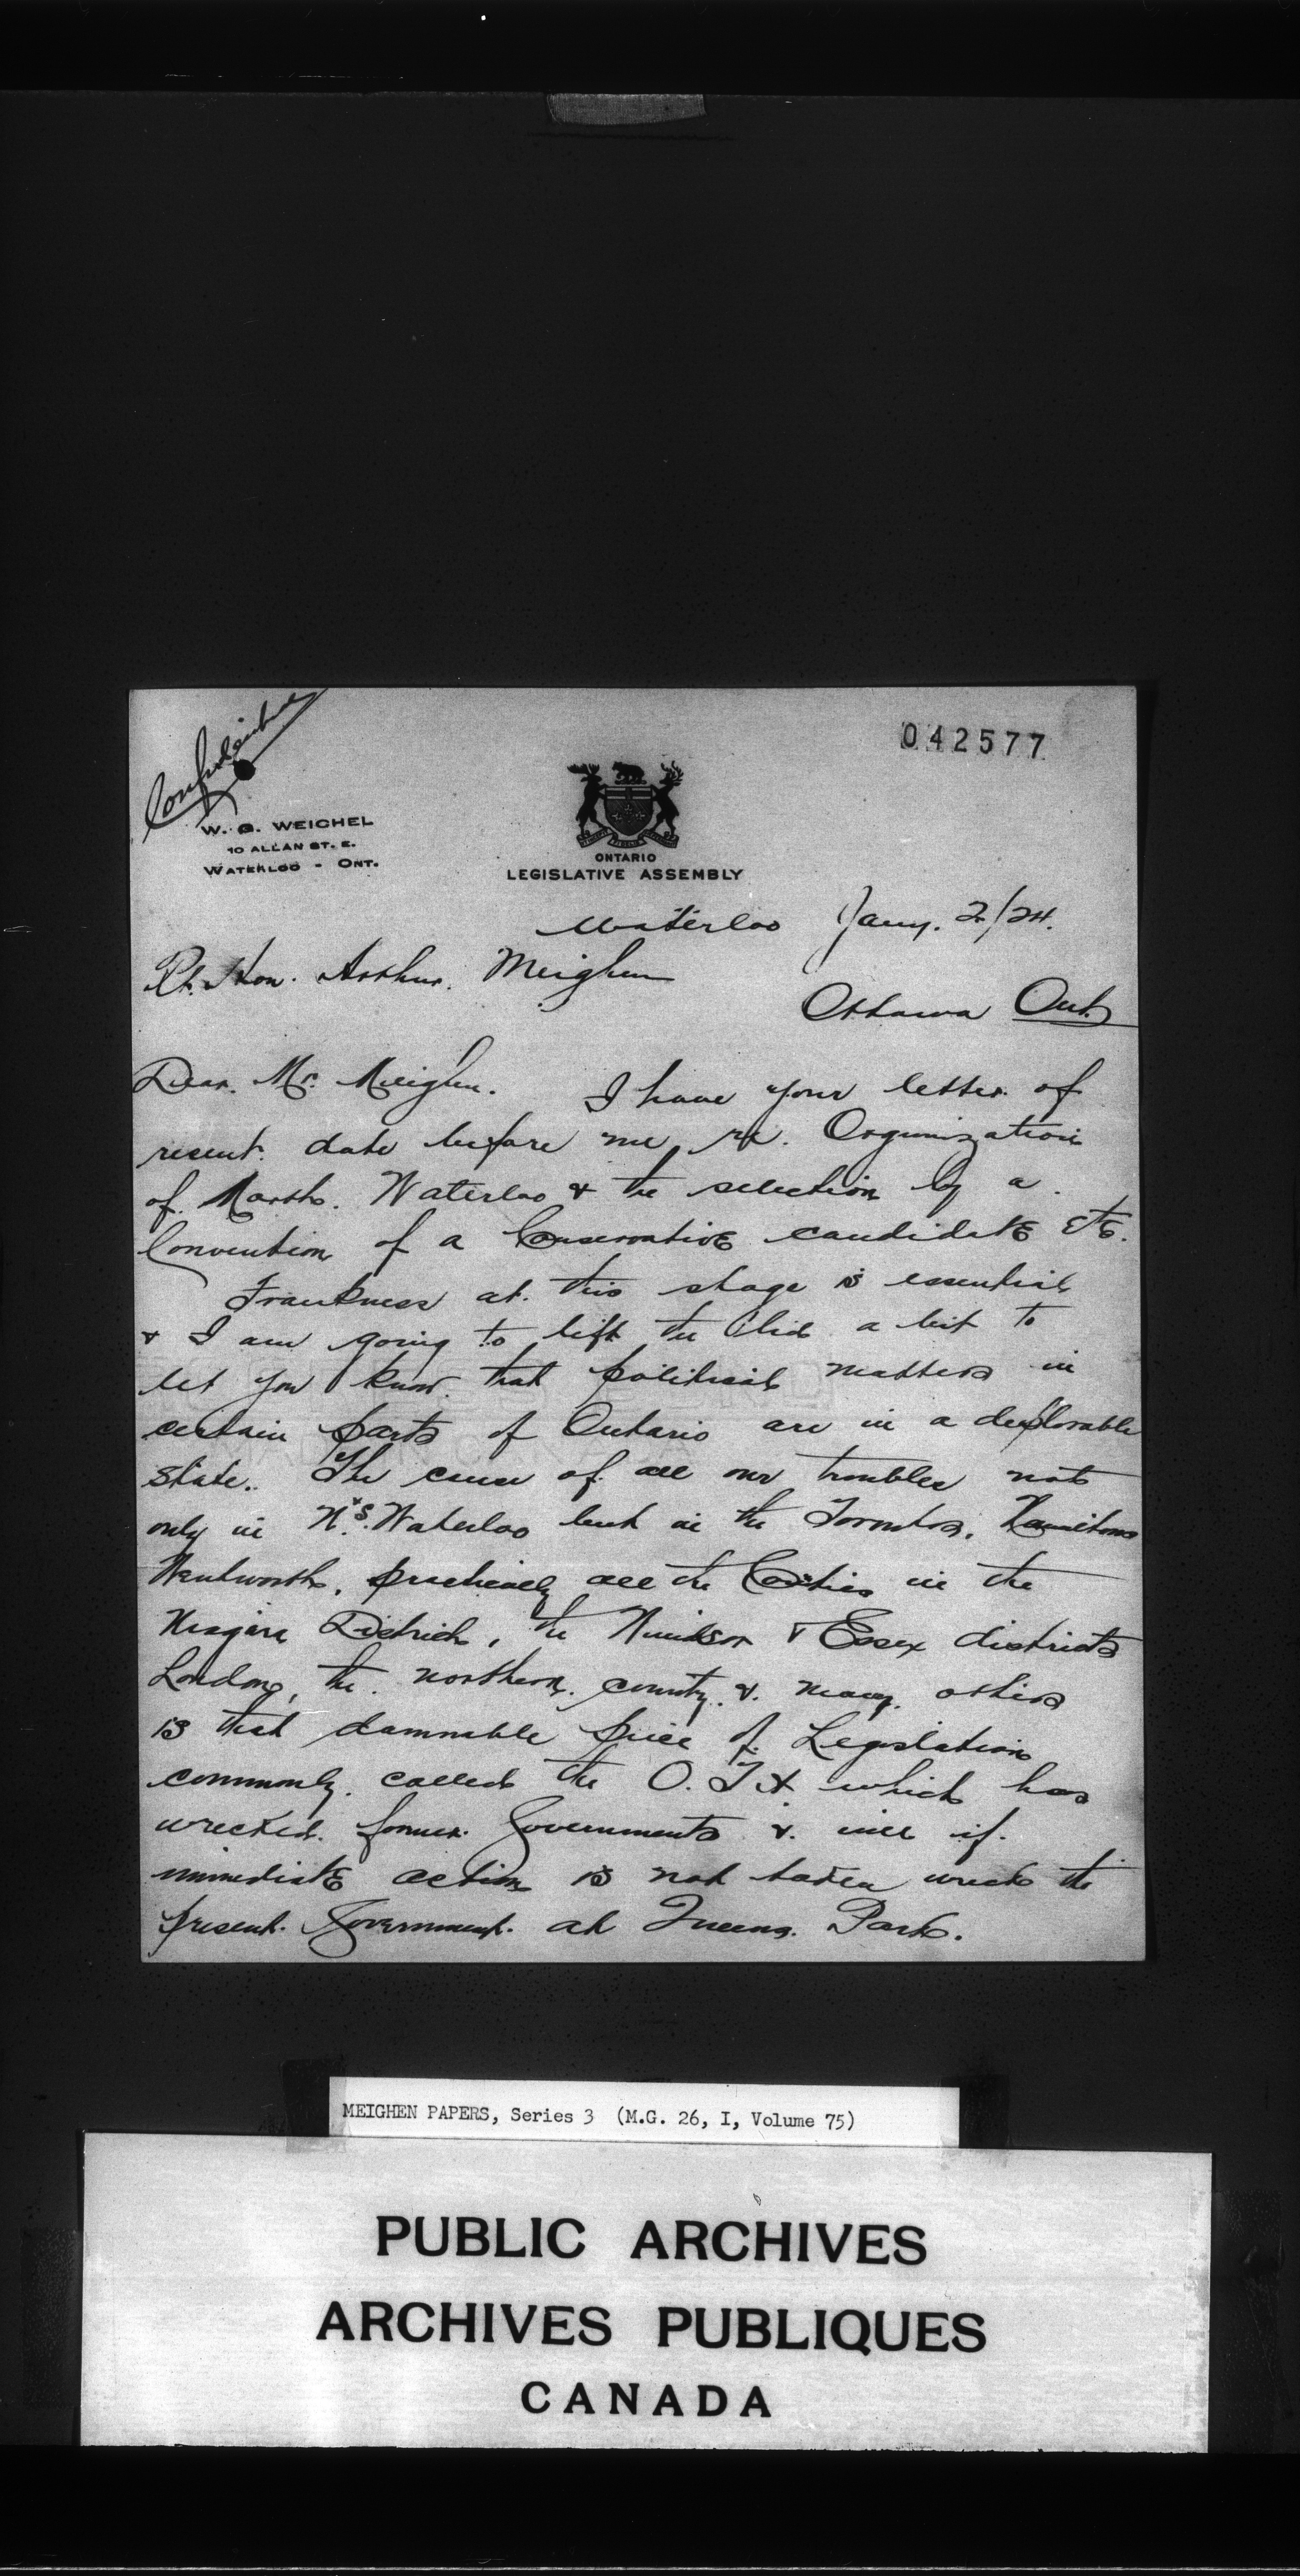 Confidential
042577
W. G. WEICHEL
10 ALLAN ST. E.
WATERLOO - ONT.
ONTARIO
LEGISLATIVE ASSEMBLY
Waterloo Jany. 2/24.
Rt. Hon. Arthur. Meighen
Ottawa Ont.
Dear. Mr. Meighen. I have your letter of
recent. date before me, re. Organization
of. North. Waterloo & the selection by a
Convention of a Conservative candidate etc.
Frankness at. this stage is essential
& I am going to lift the lid a bit to
let you know. that political matters in
certain parts of Ontario are in a deplorable
state. The cause of all our troubles not
only in N. & S. Waterloo but in the Torontos. Hamiltons
Wentworth, practically all the Counties in the
Niagara District, the Windsor & Essex districts
London, the northern. county. &. many. others
is that damnable piece of Legislation
commonly. called the O.T.A. which has
wrecked. former. Governments &. will if.
immediate action is not taken wreck the
present. Government. at Queens. Park.
MEIGHEN PAPERS, Series 3 (M.G. 26, I, Volume 75)
PUBLIC ARCHIVES
ARCHIVES PUBLIQUES
CANADA